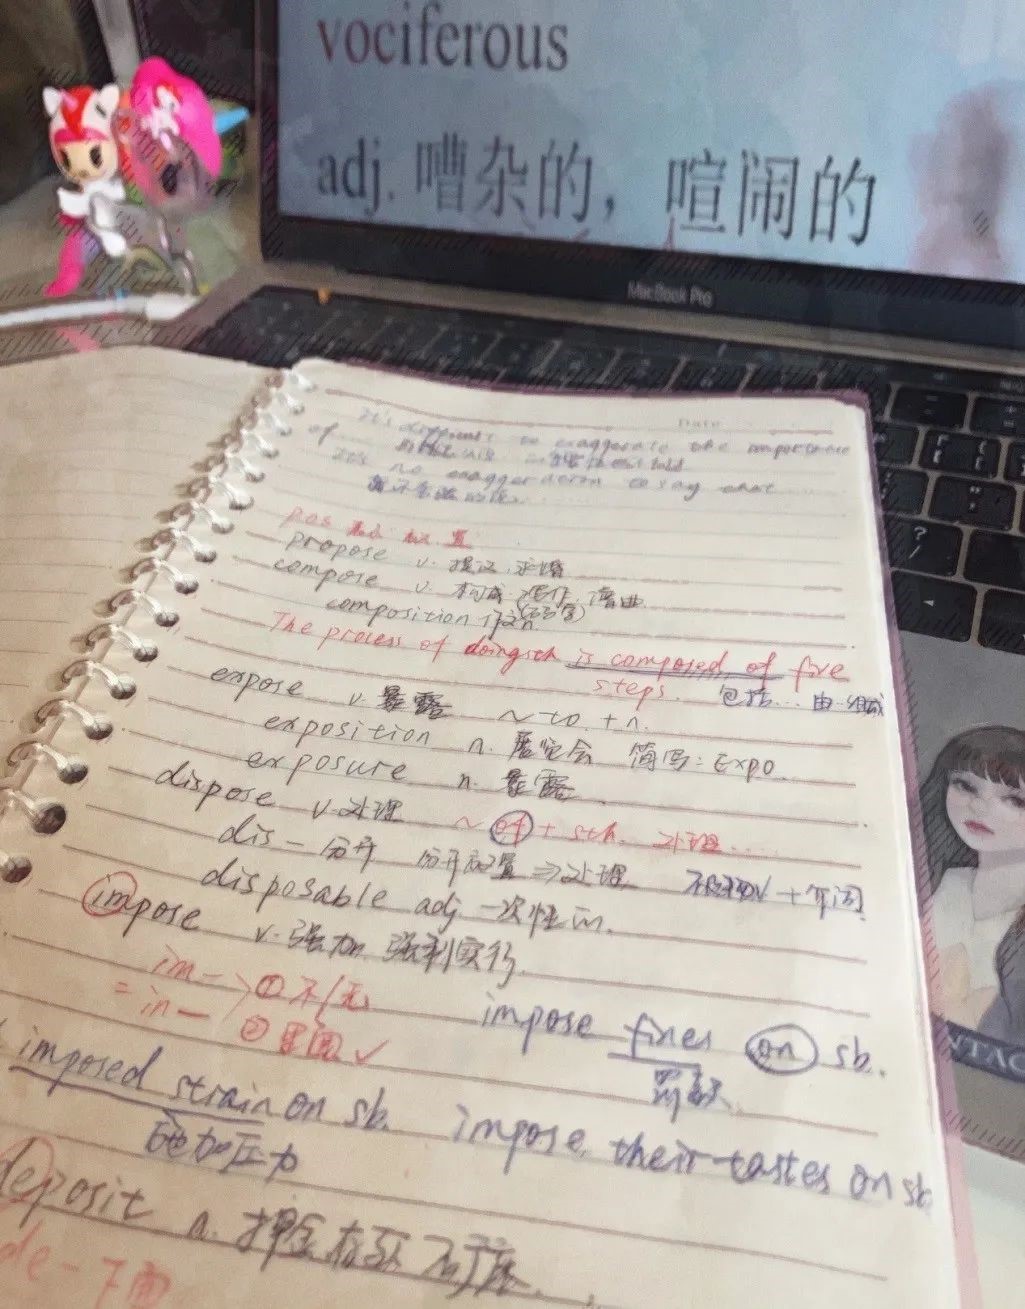 vociferous
adj. 嘈杂的，喧闹的
MacBook Pro
Date
It's difficult to exaggerate the importance
of
It's no exaggeration to say that
pos 放置
propose v. 提议，求婚
compose v. 构成 写作，谱曲
composition n.
The process of doing sth is composed of five
steps. 包括... 由...组成
expose v. 暴露 ~ to + n.
exposition n. 展览会 简写: Expo
exposure n. 暴露
dispose v. 处理 ~ of + sth. 处理....
dis - 分开 分开放置 => 处理 不及物v + 介词
disposable adj 一次性的.
impose v. 强加，强制实行
im- ① 不/无
= in- ② 里面 ✓
impose fines on sb.
罚款
imposed strain on sb. impose their tastes on sb.
施加压力
deposit n. 押金 存款
de - 下面